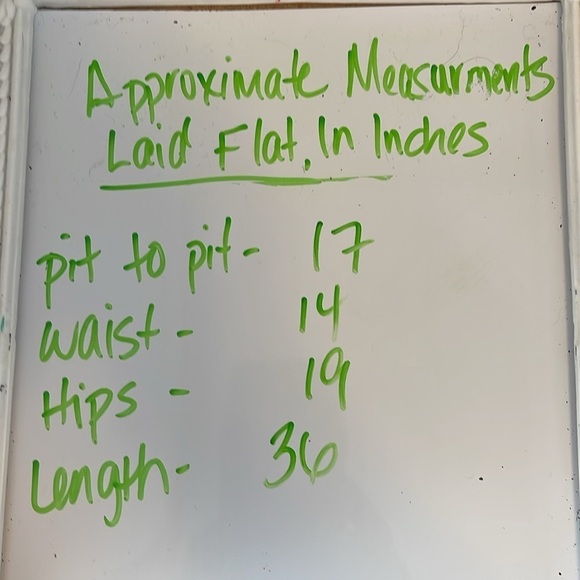 Approximate Measurments
Laid Flat, In Inches
pit to pit - 17
waist - 14
Hips - 19
Length - 36